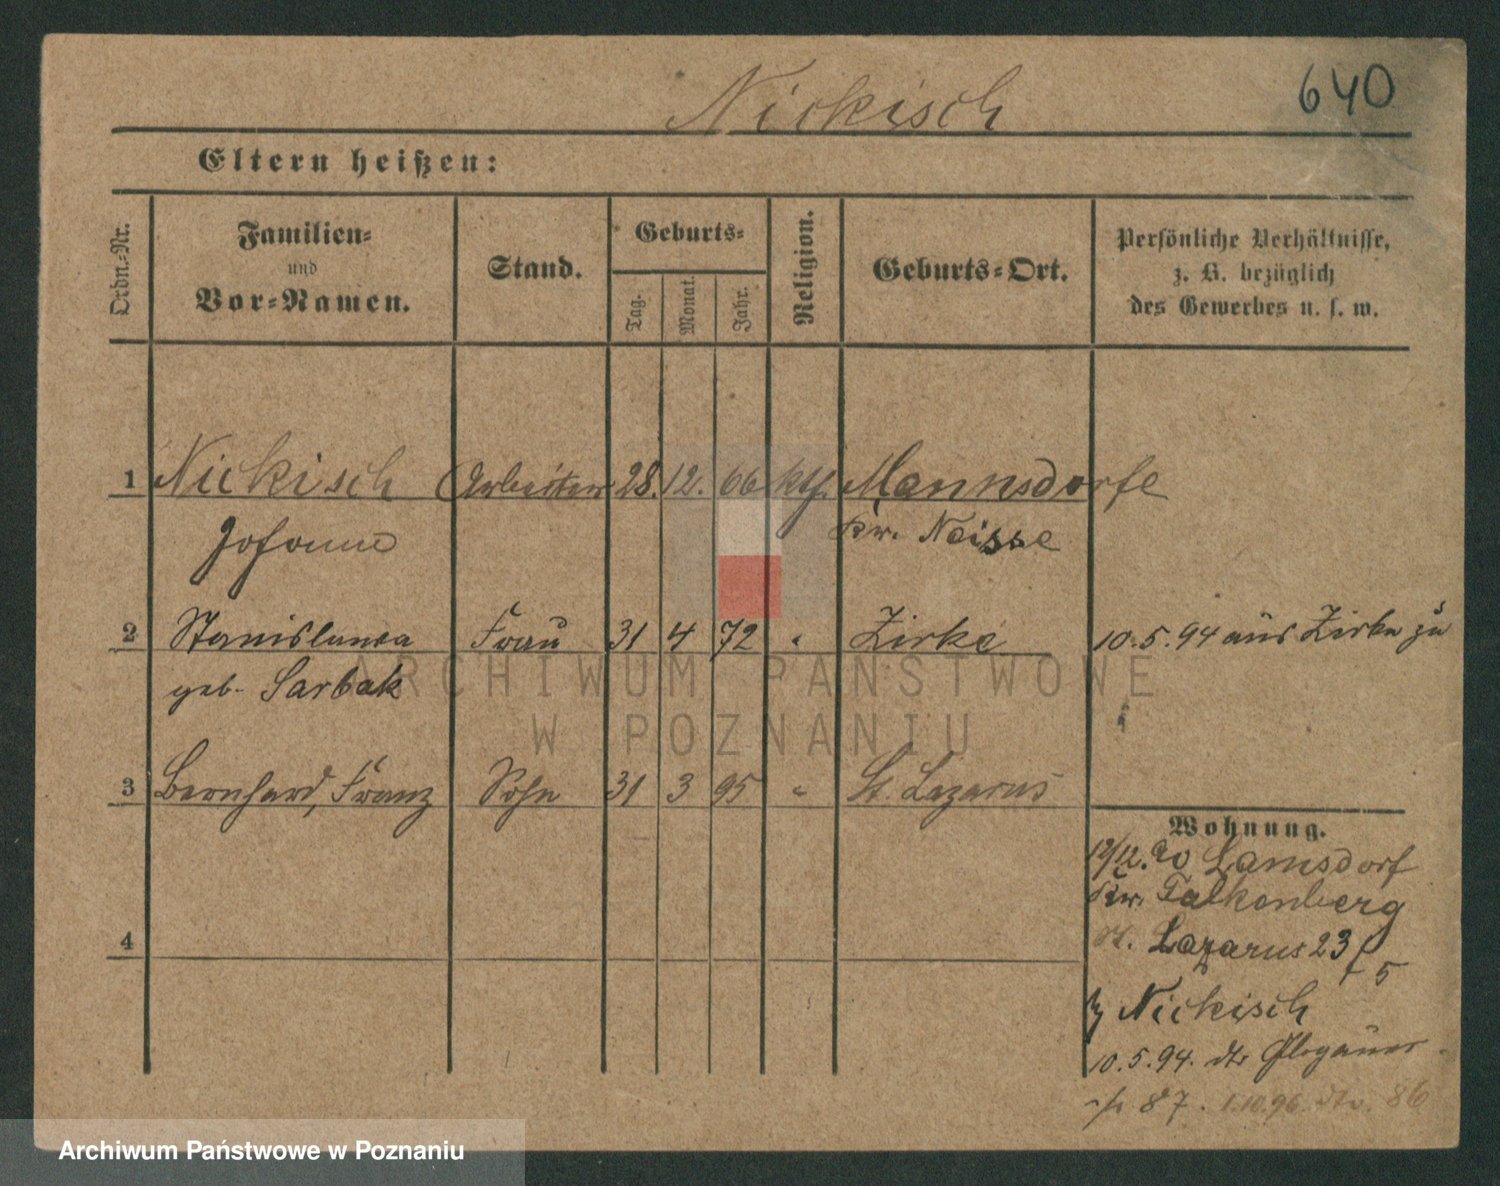 Nickisch
640
Eltern heißen:
Ordn.-Nr.
Familien-
und
Vor-Namen.
Stand.
Geburts-
Tag.
Monat.
Jahr.
Religion.
Geburts-Ort.
Persönliche Verhältnisse,
z. B. bezüglich
des Gewerbes u. s. w.
1 Nickisch Arbeiter 28. 12. 66 kth. Mannsdorf
Johann Kr. Neisse
2 Stanislawa Frau 31 4 72 " Zirke 10.5.94 aus Zirke zu
geb. Sarbak
3 Bernhard, Franz Sohn 31 3 95 " St. Lazarus
4
Wohnung.
12/12. 90 Lamsdorf
Kr. Falkenberg
St. Lazarus 23
5
Nickisch
10.5.94. dto Glogauer
87. 1.10.96. dto. 86
ARCHIWUM PAŃSTWOWE
W POZNANIU
Archiwum Państwowe w Poznaniu